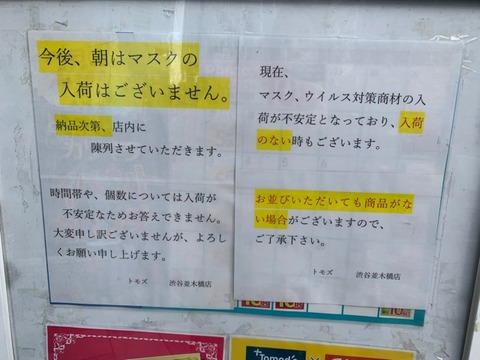 今後、朝はマスクの
入荷はございません。
納品次第、店内に
陳列させていただきます。
時間帯や、個数については入荷が
不安定なためお答えできません。
大変申し訳ございませんが、よろし
くお願い申し上げます。
トモズ 渋谷並木橋店
現在、
マスク、ウイルス対策商材の入
荷が不安定となっており、入荷
のない時もございます。
お並びいただいても商品がな
い場合がございますので、
ご了承下さい。
トモズ 渋谷並木橋店
Tomod's